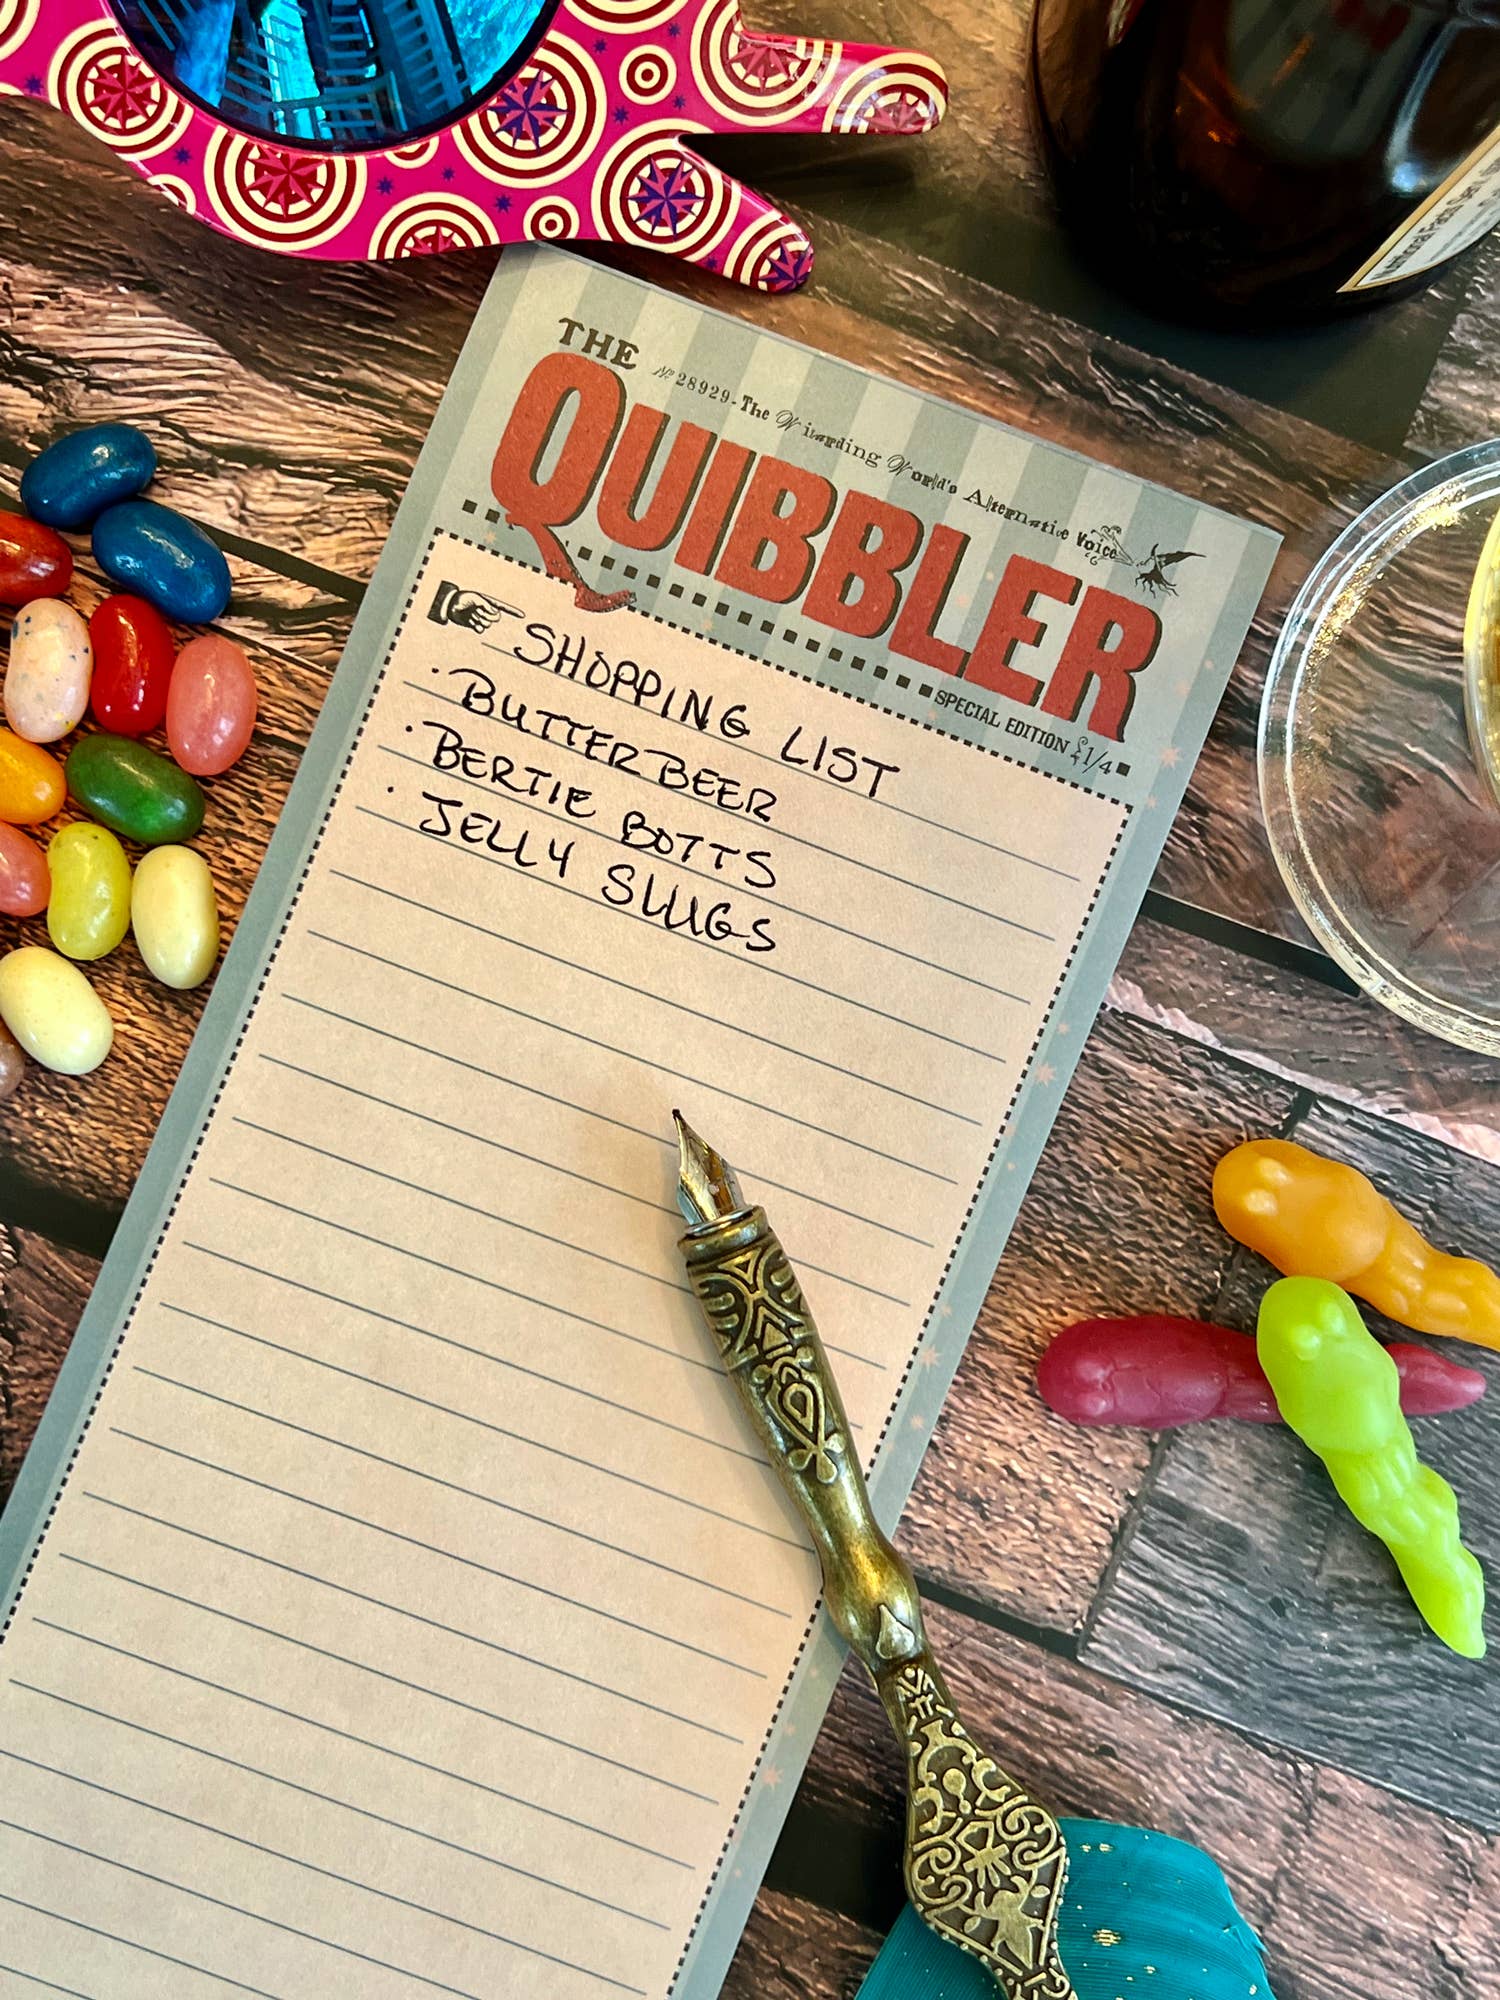 THE
Nº 28929 - The Wizarding World's Alternative Voice
QUIBBLER
SPECIAL EDITION £1/4
SHOPPING LIST
· BUTTERBEER
· BERTIE BOTTS
· JELLY SLUGS